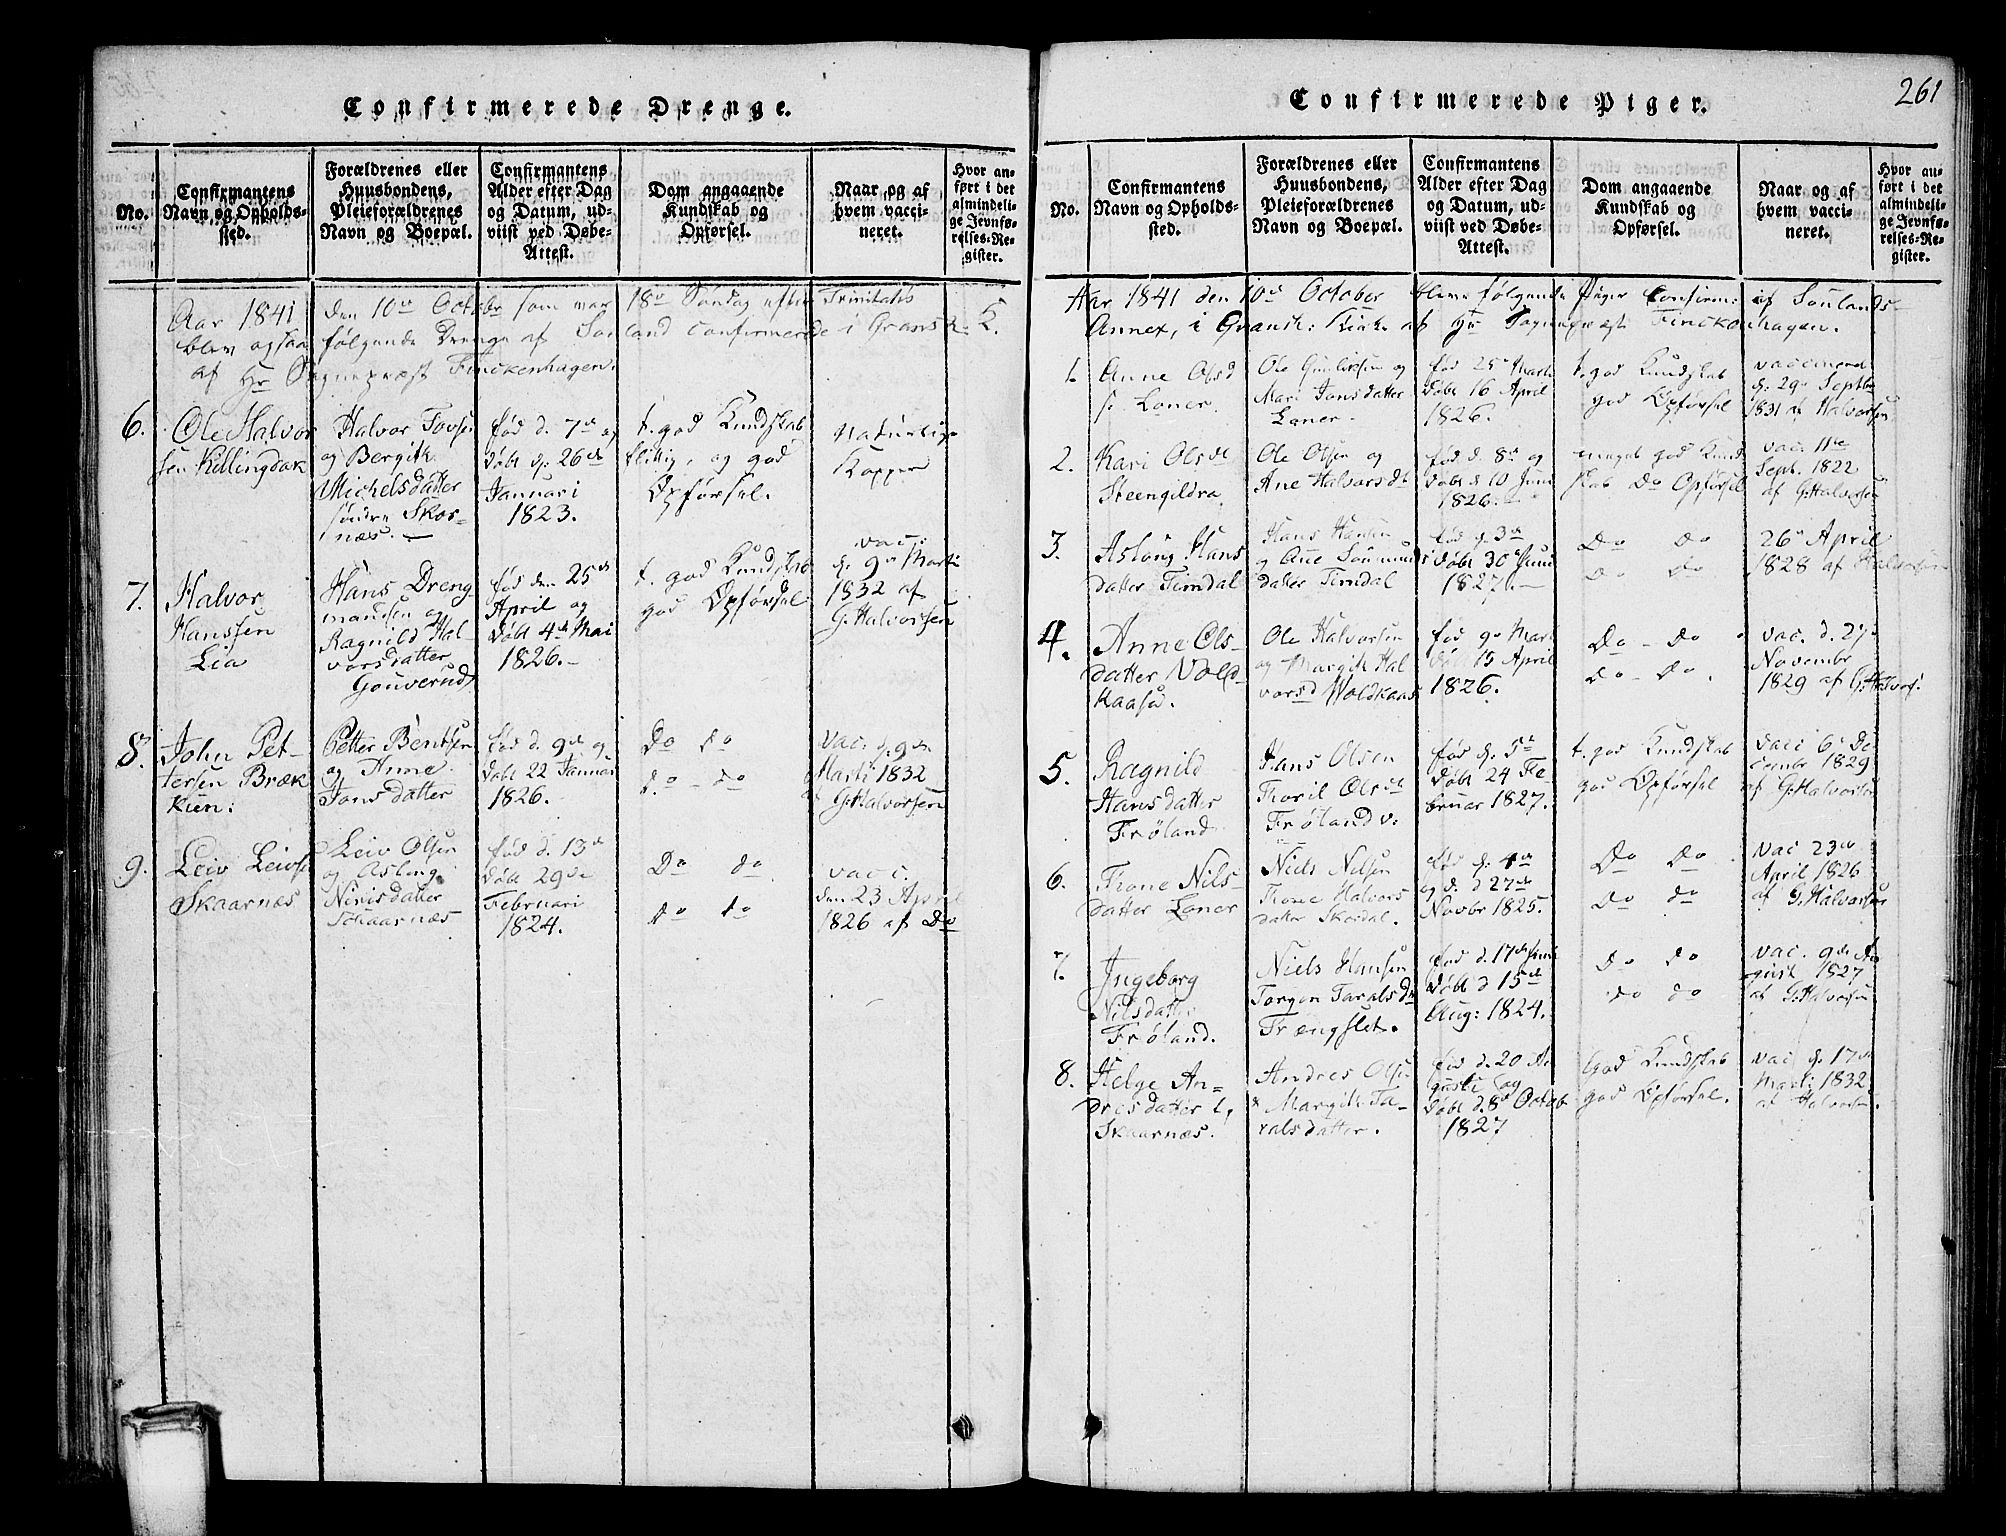 Confirmerede Drenge.
No.
Confirmantens
Navn og Opholds-
sted.
Forældrenes eller
Huusbondens,
Pleieforældrenes
Navn og Boepæl.
Confirmantens
Alder efter Dag
og Datum, ud-
viist ved Døbe-
Attest.
Dom angaaende
Kundskab og
Opførsel.
Naar og af
hvem vacci-
neret.
Hvor an-
ført i det
almindeli-
ge Jevnfø-
relses-Re-
gister.
Aar 1841 den 10de October som var 18de Søndag efter Trinitatis
blev ogsaa følgende Drenge af Sauland confirmerede i Gransh: K.
af Hr Sognepræst Finckenhagen.
6.
Ole Halvor
sen Killingdak
Halvor Tovsen
og Bergith
Michelsdatter
søndre Skor-
næs.
fød d. 7de og
døbt d. 26de
Januari
1823.
t. god Kundskab
flittig, og god
Opførsel.
Naturlige
Kopper
7.
Halvor
Hanssen
Lia
Hans Dreng
mansen og
Ragnild Hal-
vorsdatter
Gouverud
fød den 25de
April og
døbt 4de Mai
1826.
t. god Kundskab
god Opførsel
vac:
d. 9de Marti
1832 af
G: Halvorsen
8.
John Pet-
tersen Bræk
ken:
Petter Bentsen
og Anne
Jonsdatter
fød d. 9de og
døbt 22 Januar
1826.
Do do
do - do
Vac: d. 9de
Marti 1832
af G: Halvorsen
9.
Leiv Leivsen
Skaarnæs
Leiv Olsen
og Asloug
Nirisdatter
Skaarnæs
fød d. 13de
døbt 29de
Februari
1824.
Do do
Do do
vac:
den 23 April
1826 af Do
261
Confirmerede Piger.
No.
Confirmantens
Navn og Opholds-
sted.
Forældrenes eller
Huusbondens,
Pleieforældrenes
Navn og Boepæl.
Confirmantens
Alder efter Dag
og Datum, ud-
viist ved Døbe-
Attest.
Dom angaaende
Kundskab og
Opførsel.
Naar og af
hvem vacci-
neret.
Hvor an-
ført i det
almindeli-
ge Jevnfø-
relses-Re-
gister.
Aar 1841 den 10de October bleve følgende Piger Confirm: af Soulands
Annex, i Gransh: Kirke af Hr Sognepræst Finckenhagen.
1.
Anne Olsd
Loner.
Ole Gunliksen og
Mari Jonsdatter
Loner
fød 25de Marti
døbt 16 April
1826.
t. god Kundskab
god Opførsel
vaccinered
d. 29de Septbr
1831 af Halvorsen
2.
Kari Olsdt
Steengildra
Ole Olsen og
Ane Halvorsdt
fød d. 8de og
døbt d 10 Juni
1826.
meget god Kund
skab Do Opførsel
vac: 11te
Sept. 1822
af G: Halvorsen
3.
Aslaug Hans
datter Tinndal
Hans Hansen
og Ane Sonmund
datter Tinndal
fød d. 3de
døbt 30de Juni
1827.
Do Do
Do Do
26de April
1828 af Halvorsen
4.
Anne Ols-
datter Vold-
kaasa.
Ole Halvorsen
og Margith Hal
vorsd Woldkaas
fød 9de Mart
døbt 15 April
1826.
Do - Do
Do - Do.
vac. d. 27
Novembr
1829 af G: Halvors:
5.
Ragnild
Hansdatter
Frøland
Hans Olsen
Thoril Olsdt
Frøland v:
fød d. 5te
døbt 24 Fe-
bruar 1827.
t. god Kundskab
god Opførsel
vac: 6te De
cembr 1829
af G: Halvorsen
6.
Thone Nils-
datter Loner
Niels Nilsen
Thone Halvors
datter Skordal.
fød d. 4de
og d. 27de
Novbr 1825.
Do Do
Do do
vac 23de
April 1826
af G: Halvorsen
7.
Ingeborg
Nilsdatter
Frøland.
Niels Hansen
Torgon Taralsdt
Frængslet.
fød d. 17de Juni
døbt d 15de
Aug: 1824.
Do Do
do do
vac. 9de Au
gust 1827
af G: Halvorsen
8.
Helge An-
dresdatter
Skaarnæs.
Andres Olsen
& Margith Ta-
ralsdatter.
fød d. 20 Au
gusti og
døbt d. 8de Octob
1827
God Kundskab
god Opførsel.
vac d. 17de
Marti 1832
af Halvorsen.